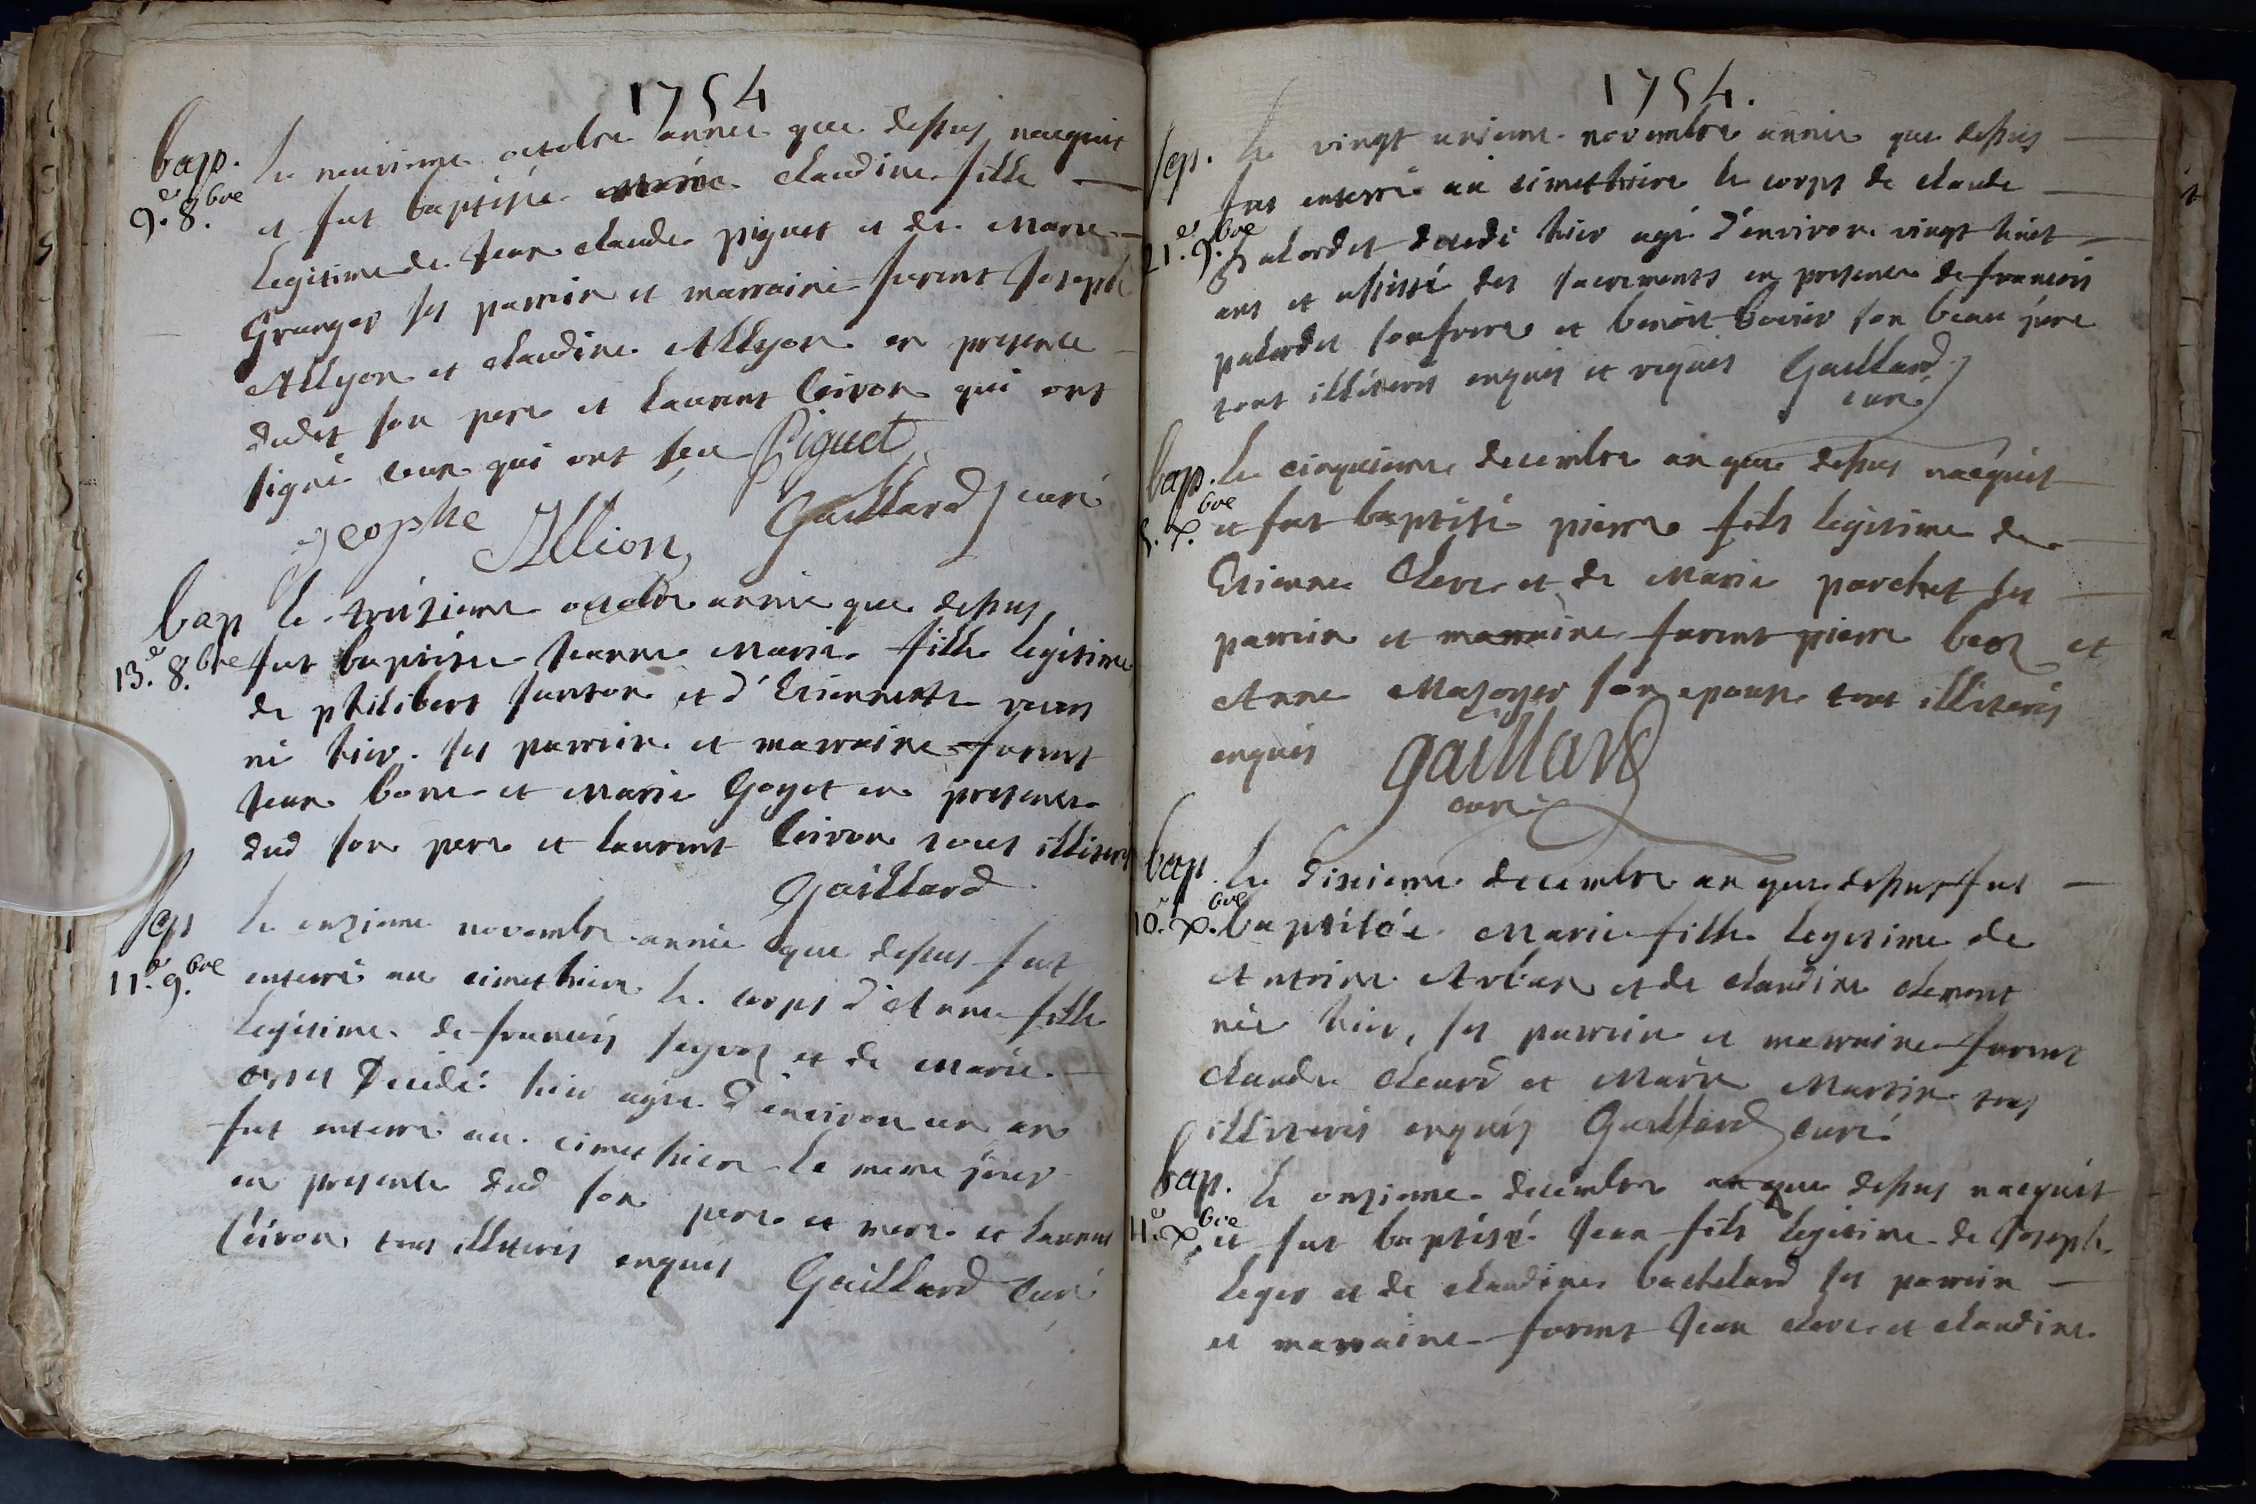 1754
bap. Le neuvieme octobre année que dessus nacquit
9.e 8.bre et fut baptisée claudine fille
legitime de Jean claude piguet et de Marie
Granger ses parrein et marraine furent Joseph
Allyon et claudine Allyon en presence
dudit son pere et laurent Civron qui ont
signé ceux qui ont sçu Piguet
Jeophe Allion Gaillard curé
bap le treizieme octobre année que dessus
13.e 8.bre fut baptisée Jeanne Marie fille légitime
de philibert et d'Etiennette
né hier. ses parrein et marraine furent
Jean bone et Marie Goyet en presence
dud son pere et laurent Civron tous illiterés
Gaillard
sep le onzieme novembre année que dessus fut
11.e 9.bre enterré au cimethiere le corps d'Anne fille
legitime de francois et de Marie
decédé hier agée d'environ un an
fut enterré au cimethiere le meme jour
en presence dud son pere et mere et laurent
Civron tous illiterés enquis Gaillard Curé
1754.
sep. Le vingt unieme novembre année que dessus
fut enterré au cimethiere le corps de claude
21.e 9.bre palordet decedé hier agé d'environ vingt huit
ans et assisté des sacrements en presence de francois
palordet son frere et benoit bovier son beau pere
tous illiterés enquis et requis Gaillard
curé
bap. Le cinquieme decembre an que dessus nacquit
5. x.bre et fut baptisé pierre fils legitime de
Etienne Clerc et de Marie parchet ses
parrein et marraine furent pierre et
Anne Mazoyer son epouse tous illiterés
enquis Gaillard
curé
bap. Le dixieme decembre an que dessus fut
10.e x.bre baptisée Marie fille legitime de
Antoine et de claudine clement
née hier, ses parrein et marraine furent
claude et Marie Martin tous
illiterés enquis Gaillard curé
bap. le onzieme decembre an que dessus nacquit
11.e x.bre et fut baptisé Jean fils legitime de Joseph
leger et de claudine bachelard ses parrein
et marraine furent Jean clerc et claudine